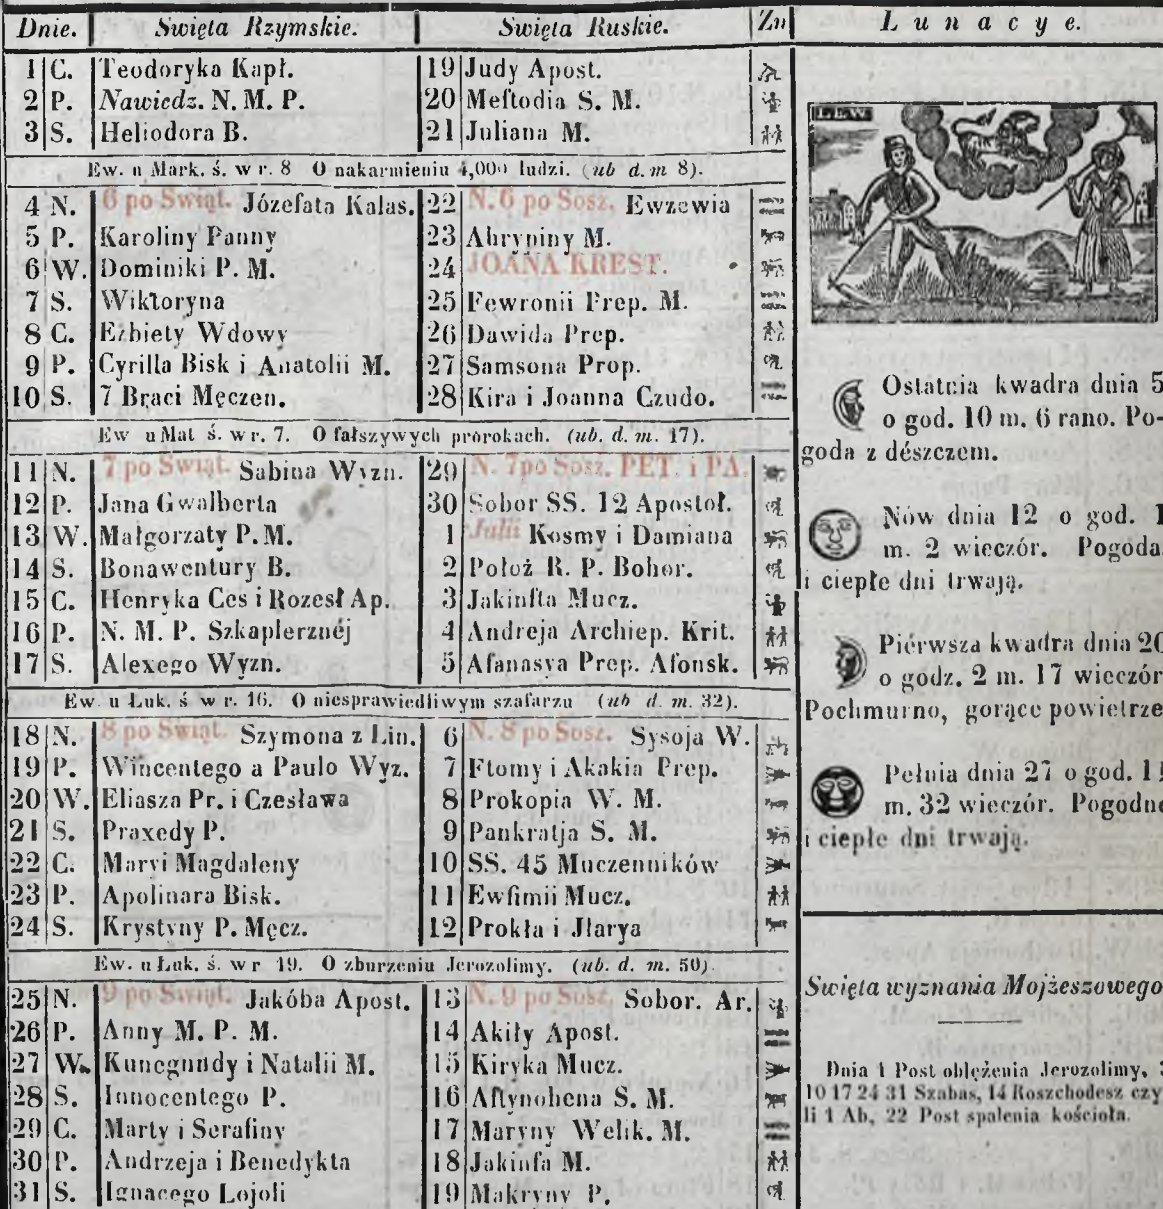 Dnie. Swięta Rzymskie. Swięta Ruskie. Zn
1 C. Teodoryka Kapł. 19 Judy Apost.
2 P. Nawiedz. N. M. P. 20 Meftodia S. M.
3 S. Heliodora B. 21 Juliana M.
Ew. u Mark. ś. w r. 8 O nakarmieniu 4,000 ludzi. (ub d. m 8).
4 N. 6 po Swiąt. Józefata Kalas. 22 N. 6 po Sosz. Ewzewia
5 P. Karoliny Panny 23 Ahrypiny M.
6 W. Dominiki P. M. 24 JOANA KREST.
7 S. Wiktoryna 25 Fewronii Prep. M.
8 C. Elżbiety Wdowy 26 Dawida Prep.
9 P. Cyrilla Bisk i Anatolii M. 27 Samsona Prop.
10 S. 7 Braci Męczen. 28 Kira i Joanna Czudo.
Ew u Mat ś. w r. 7. O fałszywych prorokach. (ub. d. m. 17).
11 N. 7 po Swiąt. Sabina Wyzn. 29 N. 7 po Sosz. PET. i PA.
12 P. Jana Gwalberta 30 Sobor SS. 12 Apostoł.
13 W. Małgorzaty P. M. 1 Julii Kosmy i Damiana
14 S. Bonawentury B. 2 Położ R. P. Bohor.
15 C. Henryka Ces i Rozesł Ap. 3 Jakinfta Mucz.
16 P. N. M. P. Szkaplerznéj 4 Andreja Archiep. Krit.
17 S. Alexego Wyzn. 5 Afanasya Prep. Afonsk.
Ew. u Łuk. ś w r. 16. O niesprawiedliwym szafarzu (ub d. m. 32).
18 N. 8 po Swiąt. Szymona z Lin. 6 N. 8 po Sosz. Sysoja W.
19 P. Wincentego a Paulo Wyz. 7 Ftomy i Akakia Prep.
20 W. Eliasza Pr. i Czesława 8 Prokopia W. M.
21 S. Praxedy P. 9 Pankratja S. M.
22 C. Maryi Magdaleny 10 SS. 45 Muczenników
23 P. Apolinara Bisk. 11 Ewfimii Mucz.
24 S. Krystyny P. Męcz. 12 Prokła i Jłarya
Ew. u Łuk. ś. w r 19. O zburzeniu Jerozolimy. (ub. d. m. 50).
25 N. 9 po Swiąt. Jakóba Apost. 13 N. 9 po Sosz. Sobor. Ar.
26 P. Anny M. P. M. 14 Akiły Apost.
27 W. Kunegundy i Natalii M. 15 Kiryka Mucz.
28 S. Innocentego P. 16 Aftynohena S. M.
29 C. Marty i Serafiny 17 Maryny Welik. M.
30 P. Andrzeja i Benedykta 18 Jakinfa M.
31 S. Ignacego Lojoli 19 Makryny P.
Lunacye.
LEW
Ostatnia kwadra dnia 5
o god. 10 m. 6 rano. Po-
goda z dészczem.
Nów dnia 12 o god. 1
m. 2 wieczór. Pogoda
i ciepłe dni trwają.
Piérwsza kwadra dnia 20
o godz. 2 m. 17 wieczór
Pochmurno, gorące powietrze
Pełnia dnia 27 o god. 11
m. 32 wieczór. Pogodne
i ciepłe dni trwają.
Swięta wyznania Mojżeszowego
Dnia 1 Post oblężenia Jerozolimy, 3
10 17 24 31 Szabas, 14 Roszchodesz czy
li 1 Ab, 22 Post spalenia kościoła.